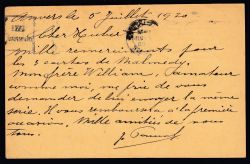 Anvers le 5 Juillet 1920
Cher Hubert
Mille remerciements pour
les 3 cartes de Malmedy.
Mon frère William, l'amateur
comme moi, me prie de vous
demander de lui envoyer la même
série. Il vous remboursera à la première
occasion. Mille amitiés de nous
tous.
J.